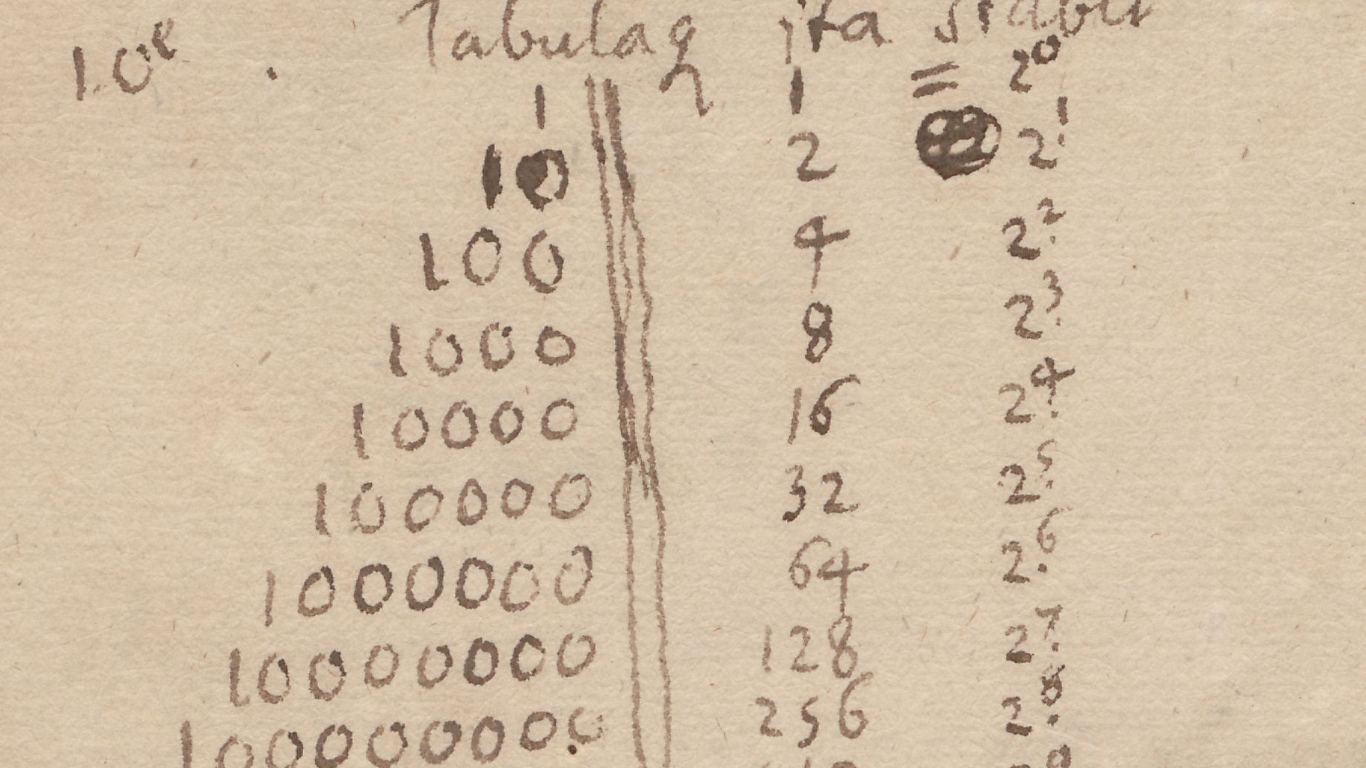 Tabula ita stabit
10e .
1 1 = 2^0
10 2 2^1
100 4 2^2.
1000 8 2^3.
10000 16 2^4.
100000 32 2^5.
1000000 64 2^6.
10000000 128 2^7.
100000000 256 2^8.